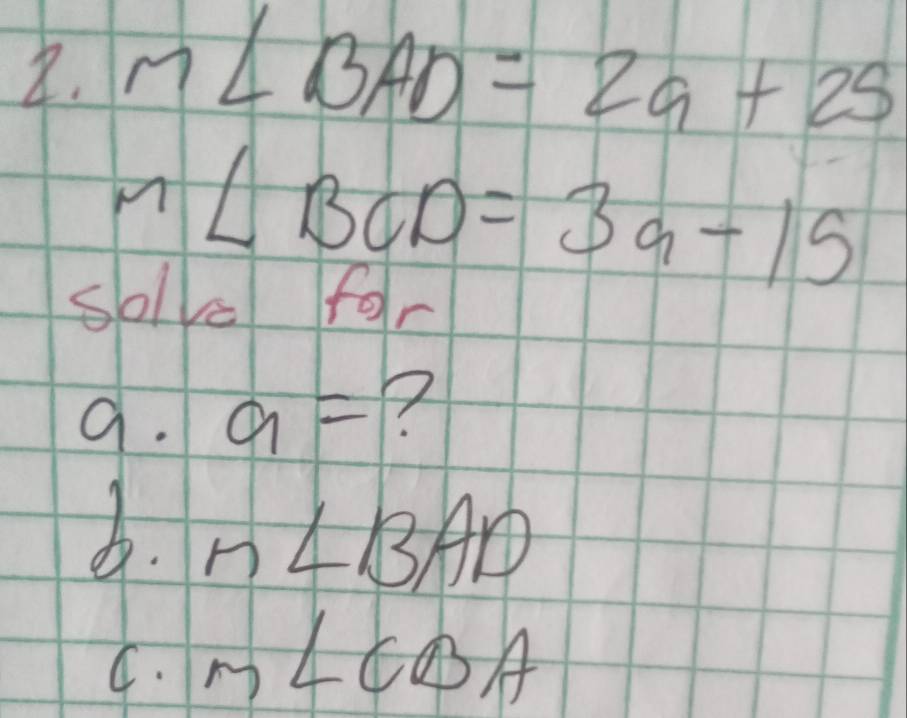 2. m∠BAD = 2a + 25
m∠BCD = 3a - 15
solve for
a. a = ?
b. m∠BAD
c. m∠CBA